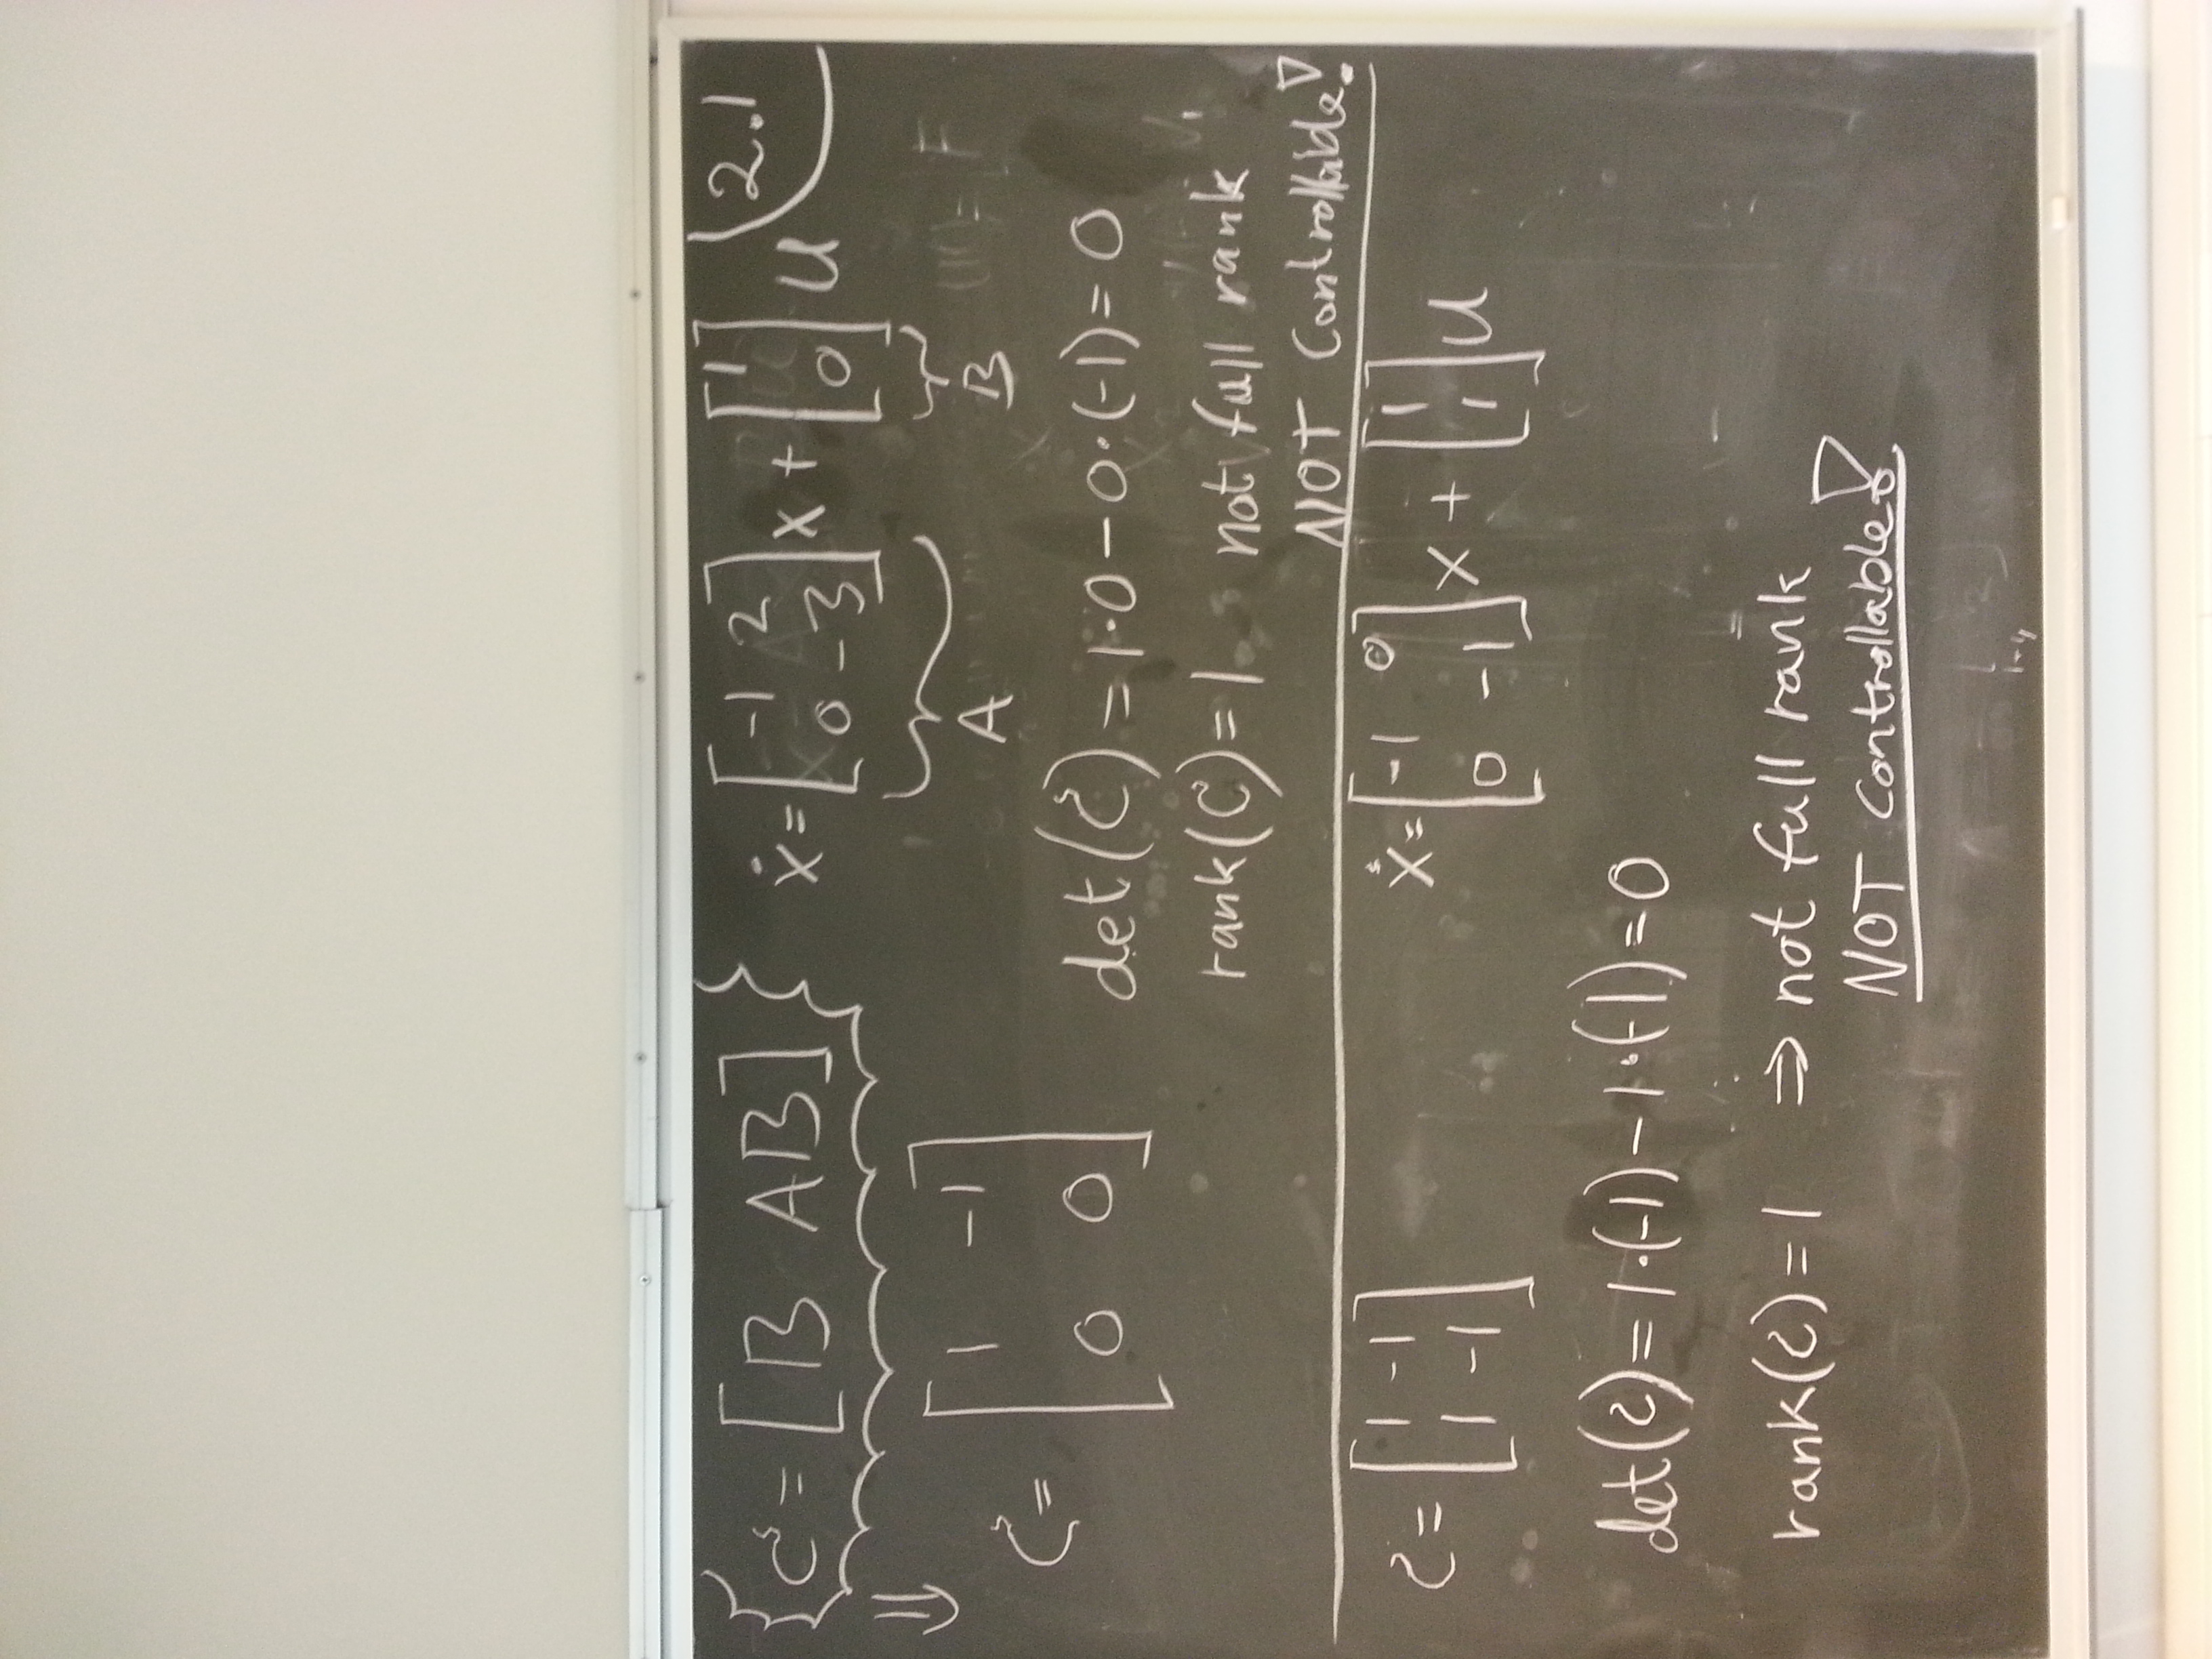 C = [B AB]
ẋ = [-1 2; 0 -3] x + [1; 0] u
2.1
A B
⇓
C = [1 -1; 0 0]
det(C) = 1·0 - 0·(-1) = 0
rank(C) = 1 not full rank
NOT Controllable!
C = [1 -1; 1 -1]
ẋ = [-1 0; 0 -1] x + [1; 1] u
det(C) = 1·(-1) - 1·(-1) = 0
rank(C) = 1 ⇒ not full rank
NOT Controllable!